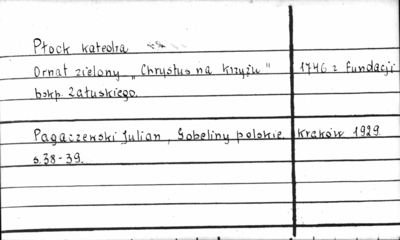 Płock katedra
Ornat zielony "Chrystus na krzyżu" 1746 z fundacji
bskp. Załuskiego.
Pagaczewski Julian, Gobeliny polskie. Kraków 1929
s.38-39.